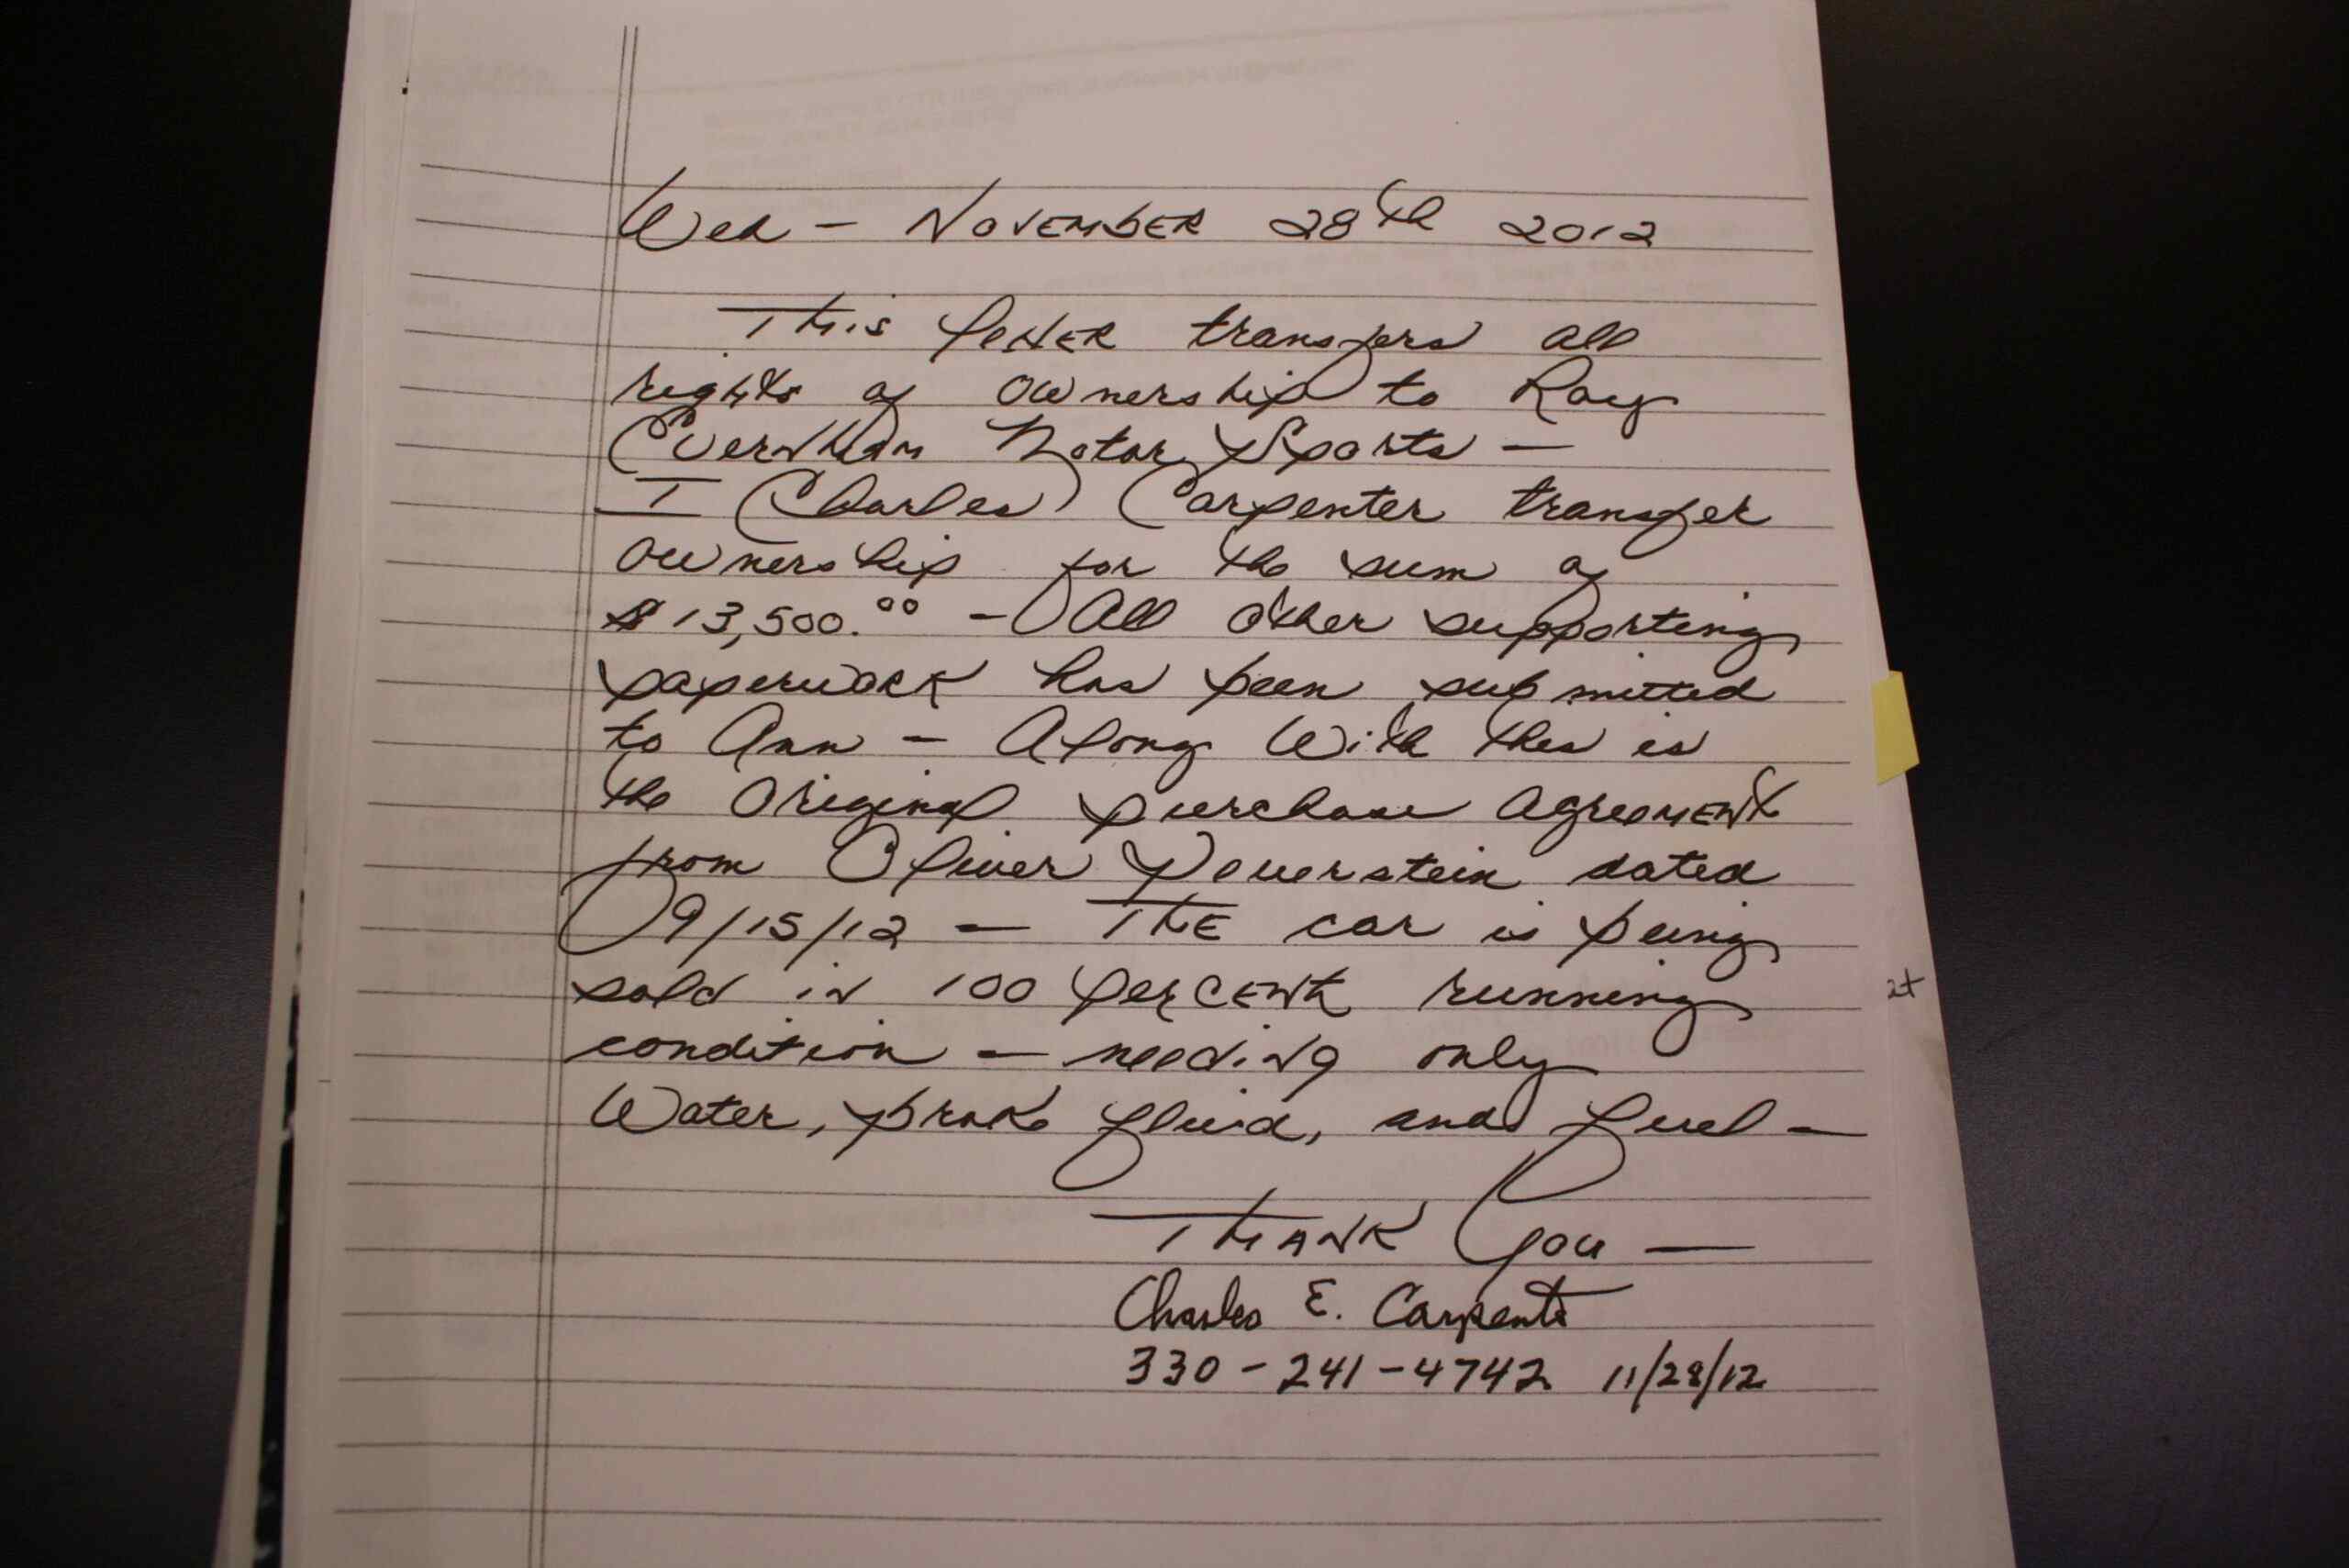 Wed - NOVEMBER 28th 2012
This letter transfers all
rights of ownership to Ray
Evernham Motor Sports -
I Charles Carpenter transfer
ownership for the sum of
$13,500.00 - All other supporting
paperwork has been submitted
to Ann - Along with this is
the original purchase agreement
from Oliver dated
09/15/12 - THE car is being
sold in 100 percent running
condition - needing only
Water, brake fluid, and fuel -
THANK You -
Charles E. Carpenter
330-241-4742 11/28/12
at